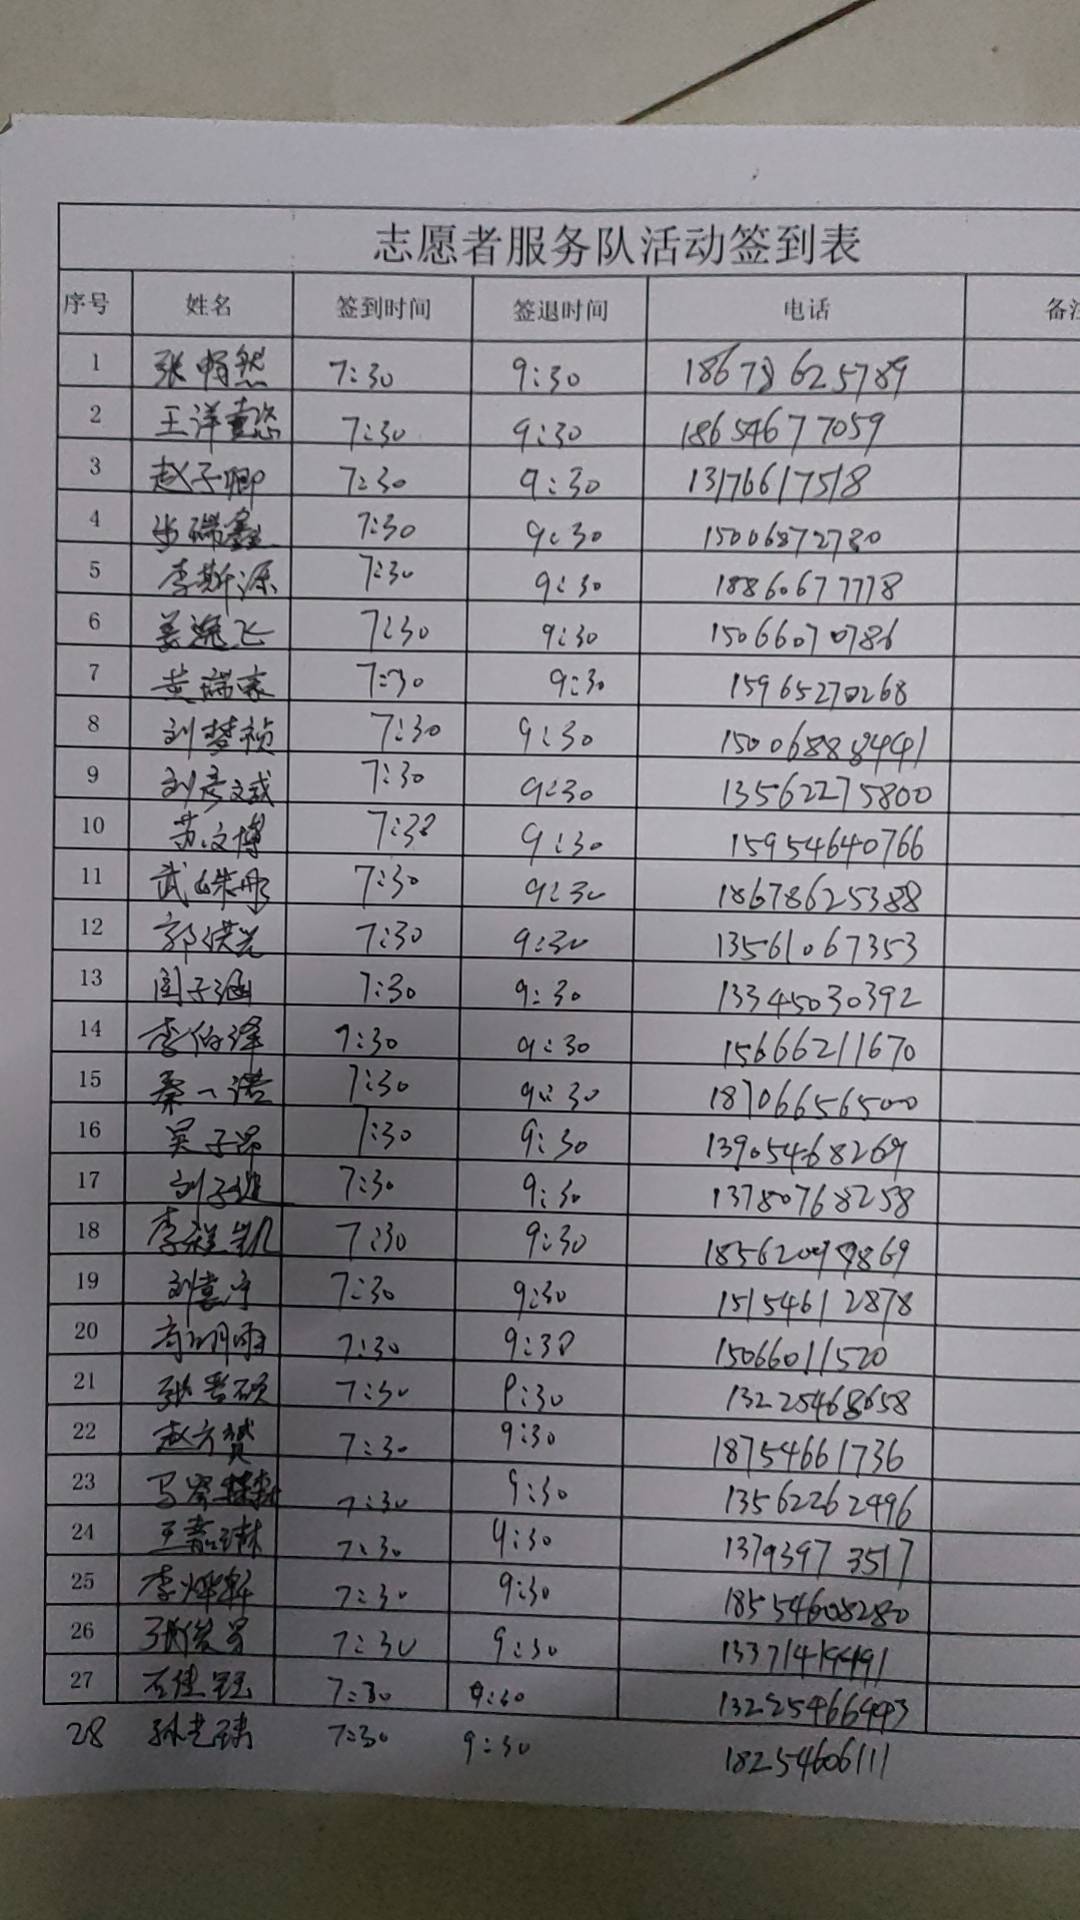 志愿者服务队活动签到表
序号 姓名 签到时间 签退时间 电话 备注
1 张栩然 7:30 9:30 18678625789
2 王洋懿 7:30 9:30 18654677059
3 赵子卿 7:30 9:30 13176617518
4 张瑞鑫 7:30 9:30 15006872780
5 李斯源 7:30 9:30 18860677778
6 姜飞 7:30 9:30 15066070786
7 黄瑞 7:30 9:30 15965270268
8 刘梦祯 7:30 9:30 15006888441
9 刘彦斌 7:30 9:30 13562275800
10 苏文博 7:30 9:30 15954640766
11 武姝彤 7:30 9:30 18678625388
12 郭洪光 7:30 9:30 13561067353
13 闫子涵 7:30 9:30 13345030392
14 李伯泽 7:30 9:30 15666211670
15 秦一诺 7:30 9:30 18706656500
16 吴子昂 7:30 9:30 13905468269
17 刘子 7:30 9:30 13780768258
18 李程凯 7:30 9:30 18562099869
19 刘宇 7:30 9:30 15154612878
20 雨 7:30 9:30 15066011520
21 张硕 7:30 9:30 13225468658
22 赵方赟 7:30 9:30 18754661736
23 马 7:30 9:30 13562262496
24 王嘉琳 7:30 9:30 13793973517
25 李烨轩 7:30 9:30 18554608280
26 张俊 7:30 9:30 13371419491
27 石佳钰 7:30 9:30 13225466443
28 孙艺 7:30 9:30 18254606111